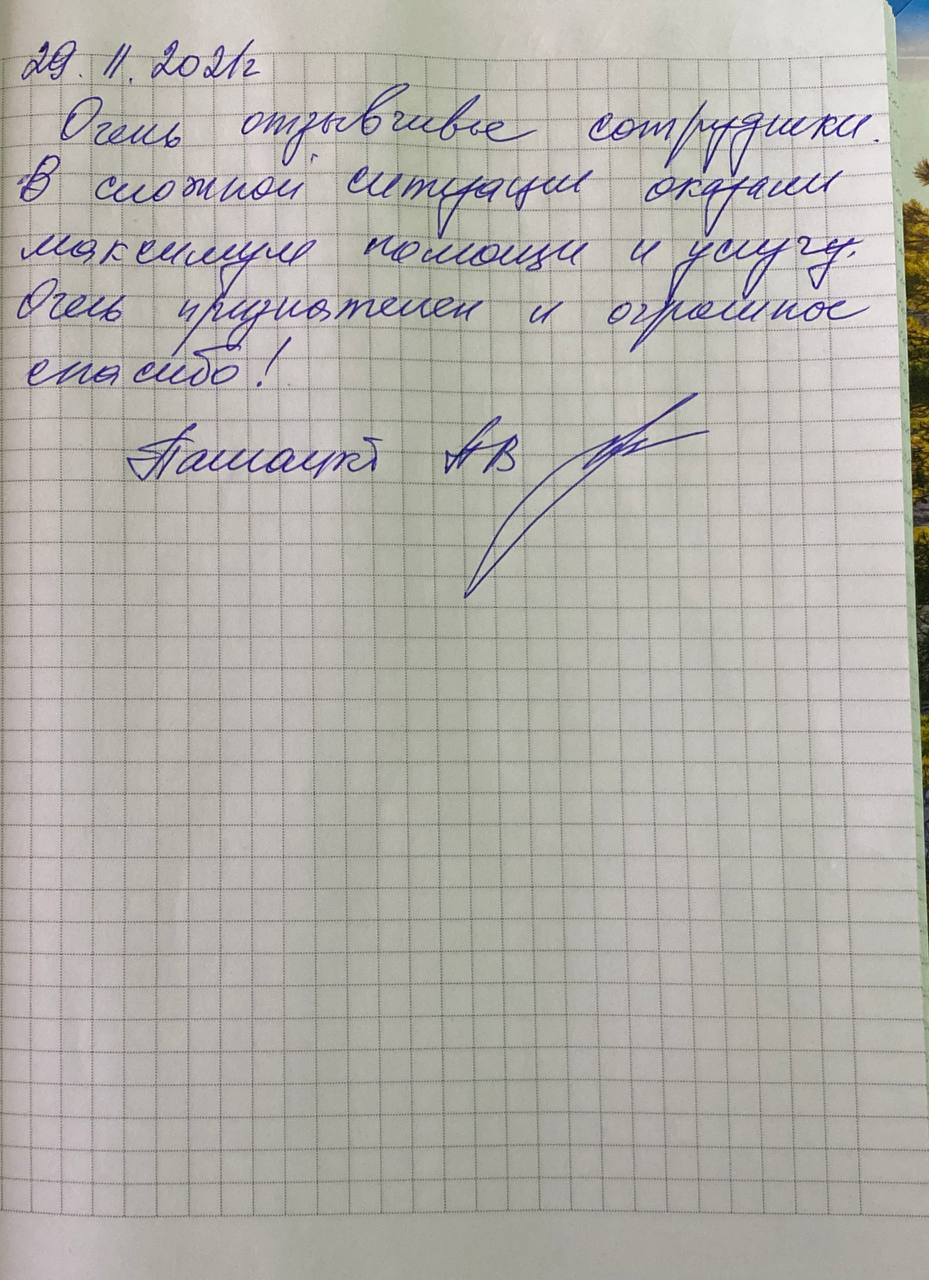 29.11.2021г
Очень отзывчивые сотрудники.
В сложной ситуации оказали
максимум помощи и услугу.
Очень признателен и огромное
спасибо!
АВ